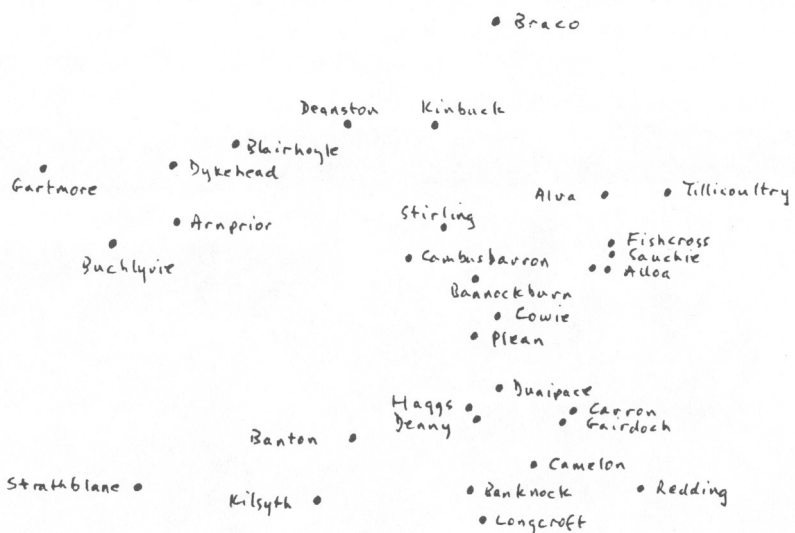 Braco
Deanston
Kinbuck
Blairhoyle
Dykehead
Gartmore
Alva
Tillicoultry
Arnprior
Stirling
Buchlyvie
Cambusbarron
Fishcross
Sauchie
Alloa
Bannockburn
Cowie
Plean
Dunipace
Haggs
Carron
Denny
Gairdoch
Banton
Camelon
Strathblane
Kilsyth
Banknock
Redding
Longcroft